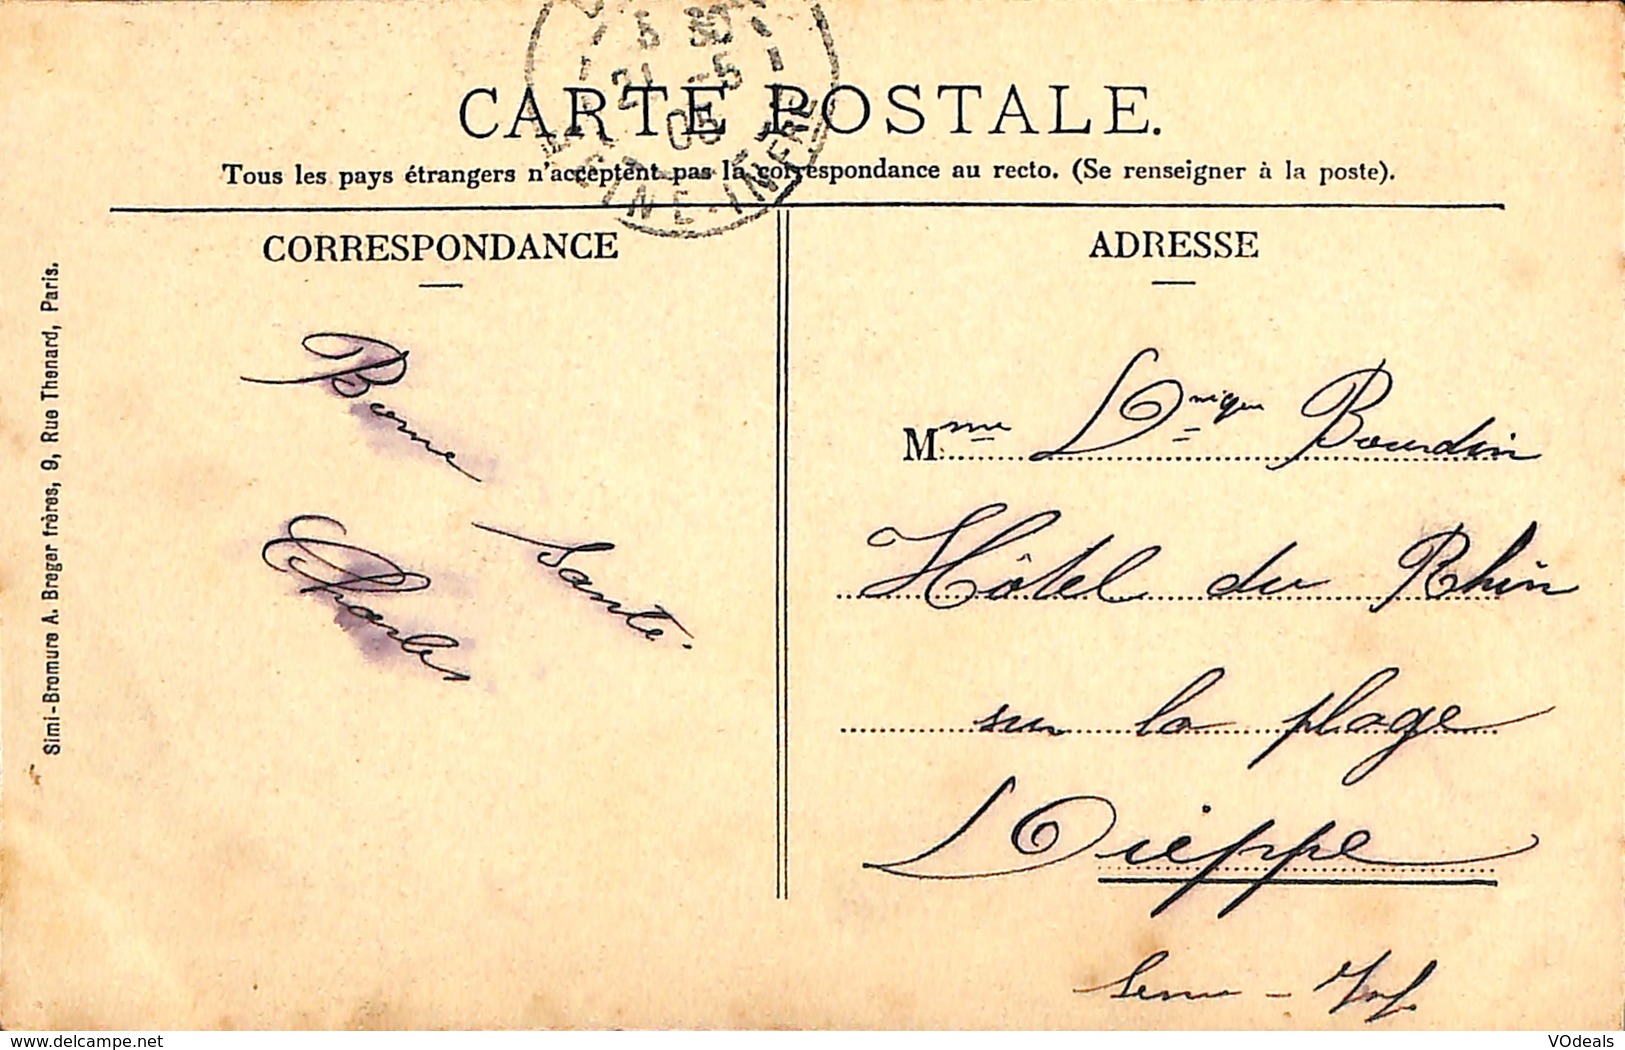 5 30
21 -5
05
INE-INFRE
CARTE POSTALE.
Tous les pays étrangers n'acceptent pas la correspondance au recto. (Se renseigner à la poste).
CORRESPONDANCE
Bonne
Santé.
Charles
Simi-Bromure A. Breger frères, 9, Rue Thenard, Paris.
ADRESSE
Mme Dnique Bourdin
Hôtel du Rhin
sur la plage
Dieppe
Seine - Inf.
delcampe.net
VOdeals